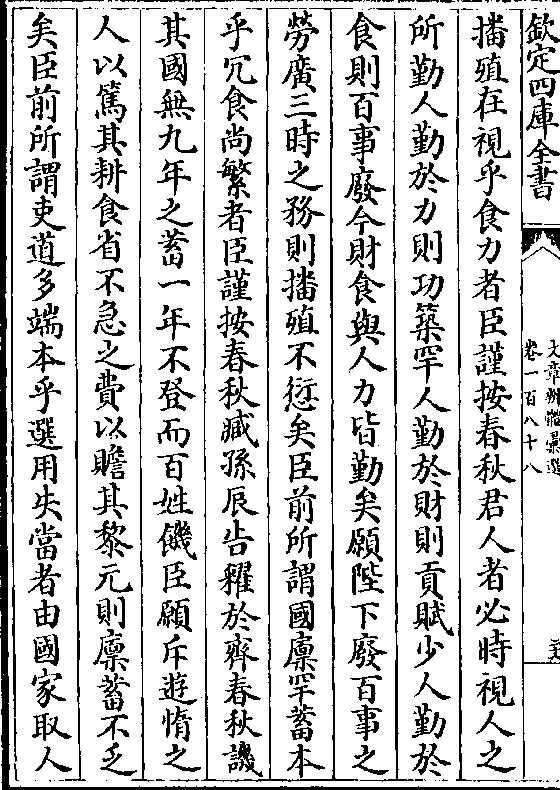 欽定四庫全書
文章辨體彙選
卷一百八十八
播殖在視乎食力者臣謹按春秋君人者必時視人之
所勤人勤於力則功築罕人勤於財則貢賦少人勤於
食則百事廢今財食與人力皆勤矣願陛下廢百事之
勞廣三時之務則播殖不愆矣臣前所謂國廩罕蓄本
乎冗食尚繁者臣謹按春秋臧孫辰告糴於齊春秋譏
其國無九年之蓄一年不登而百姓饑臣願斥遊惰之
人以篤其耕食省不急之費以贍其黎元則廪蓄不乏
矣臣前所謂吏道多端本乎選用失當者由國家取人